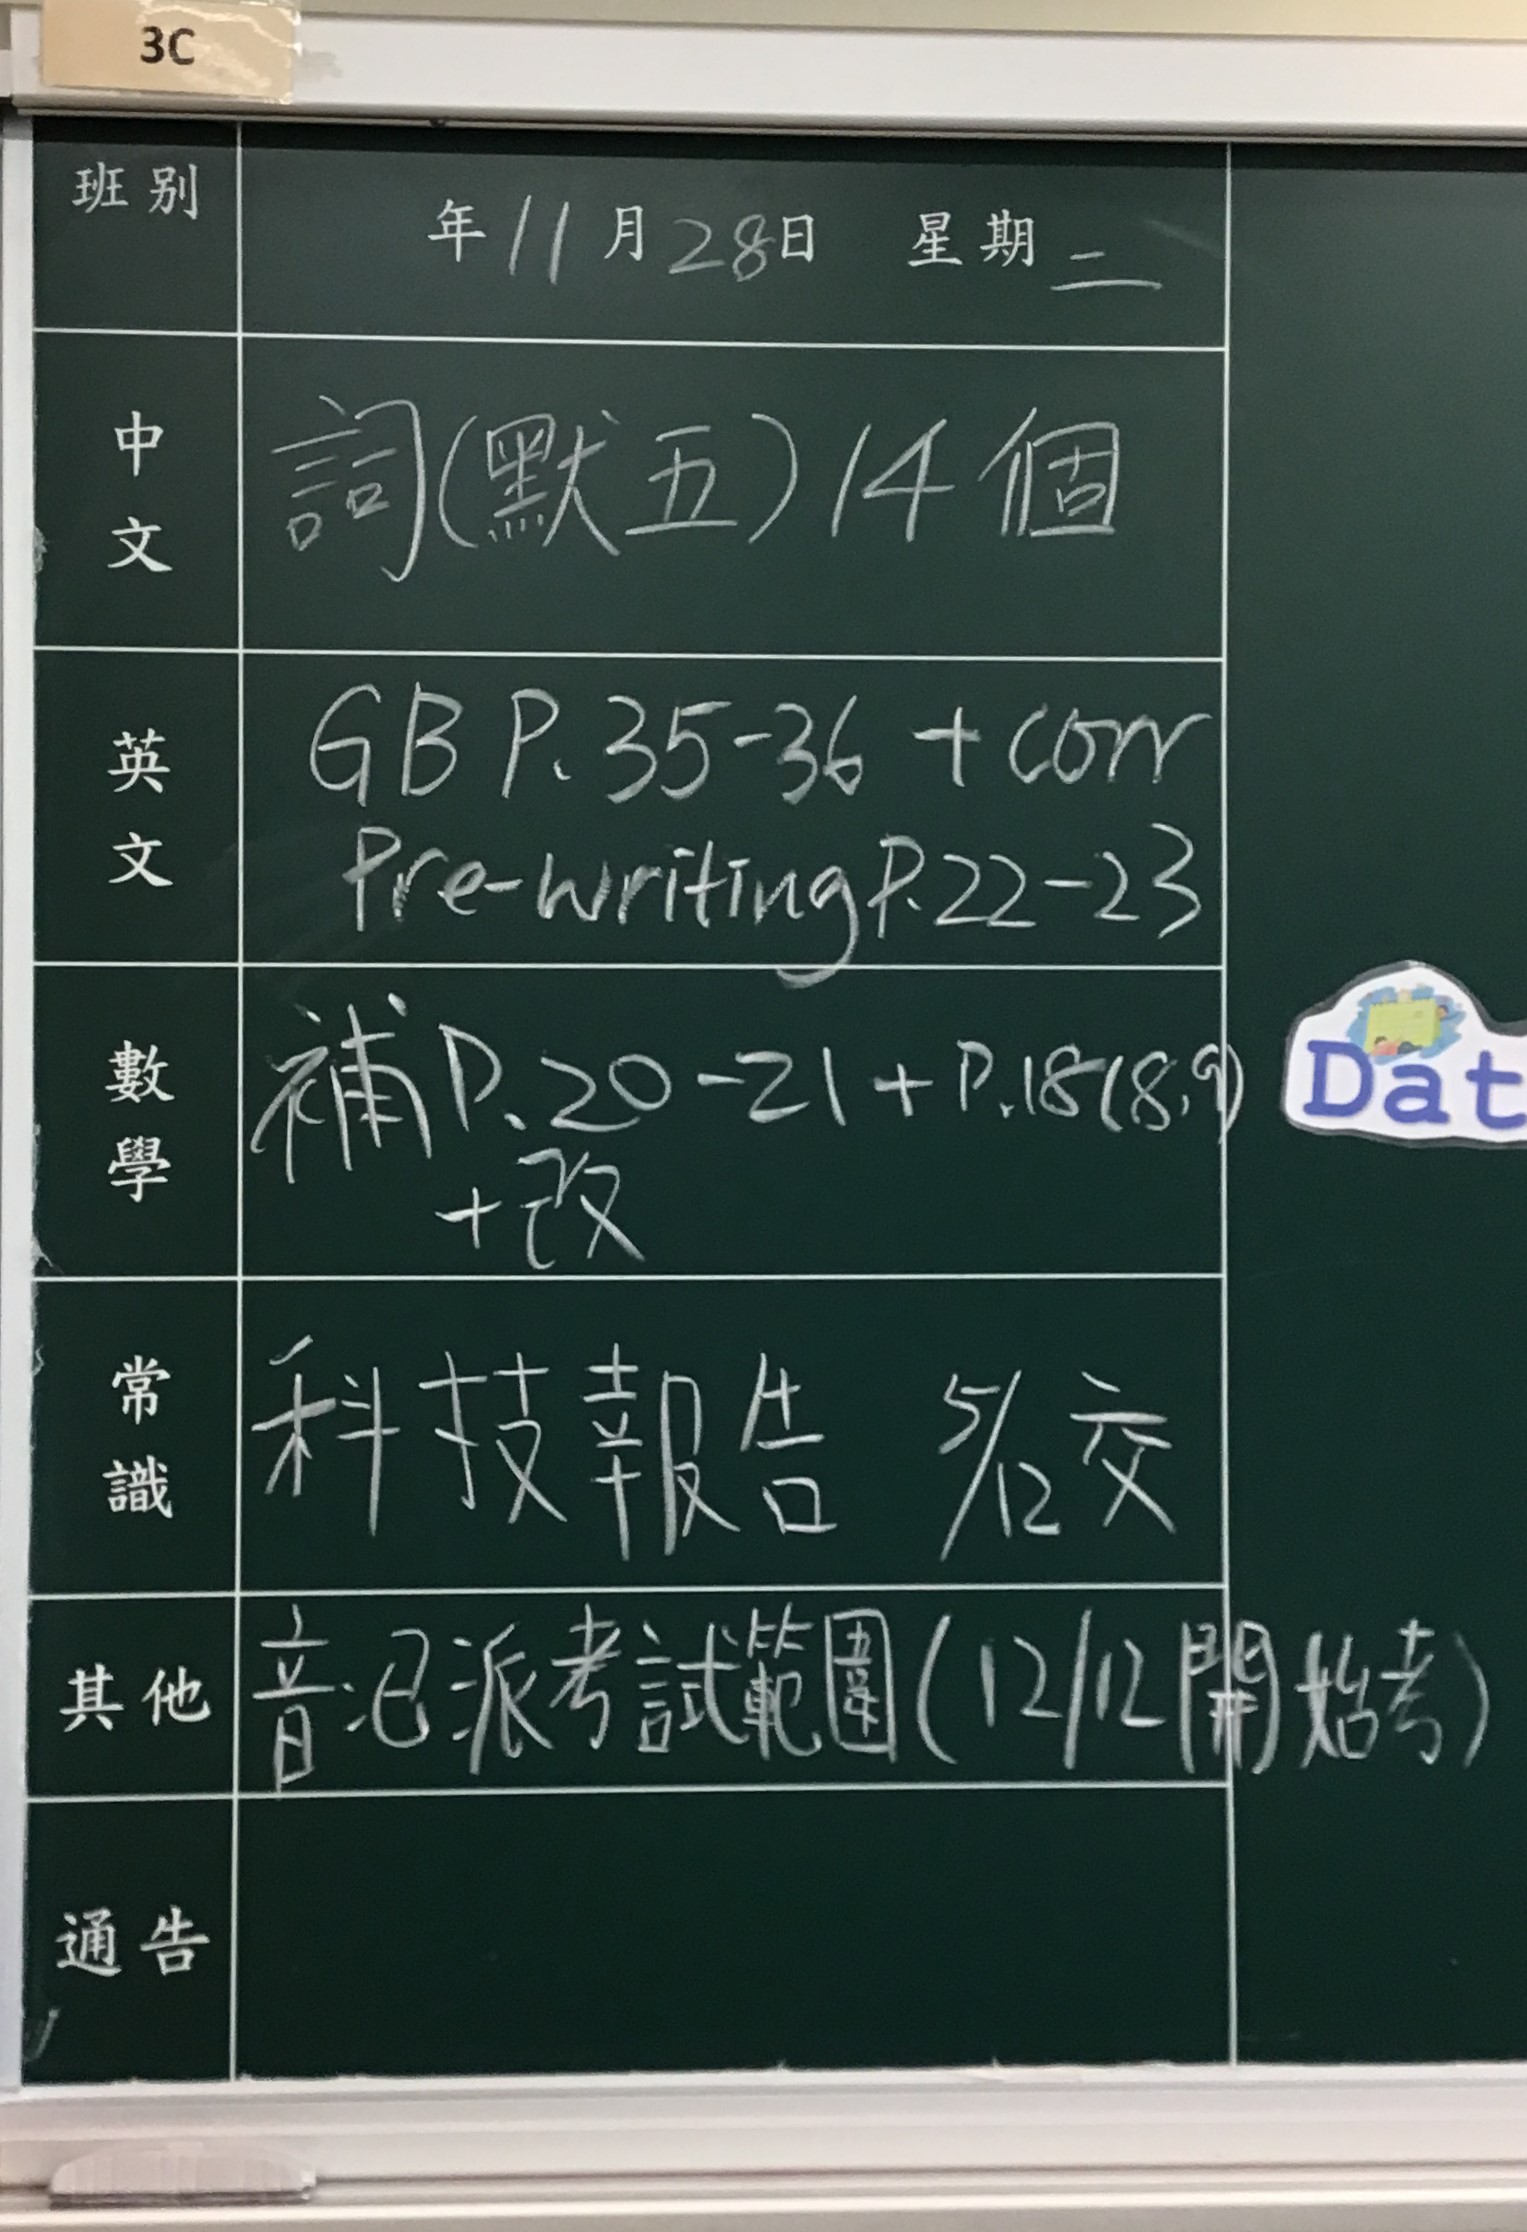 3C
班別
年11月28日 星期二
中文
詞(默五)14個
英文
GB P.35-36 + corr
Pre-writing P.22-23
數學
補P.20-21+P.18(8,9)
+改
常識
科技報告 5/12交
其他
音:已派考試範圍(12/12開始考)
通告
Dat